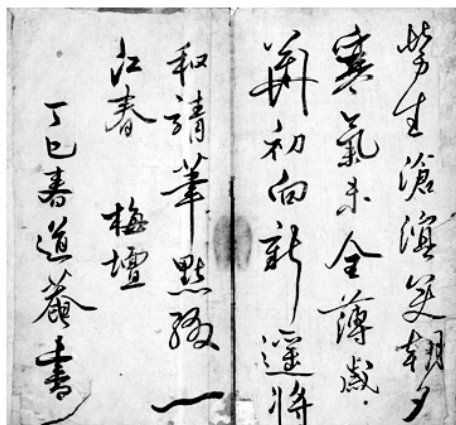 勞生滄溟笑朝夕
寒氣未全薄歲
華初向新遙將
和靖筆點綴一
江春 梅壇
丁巳春道菴書